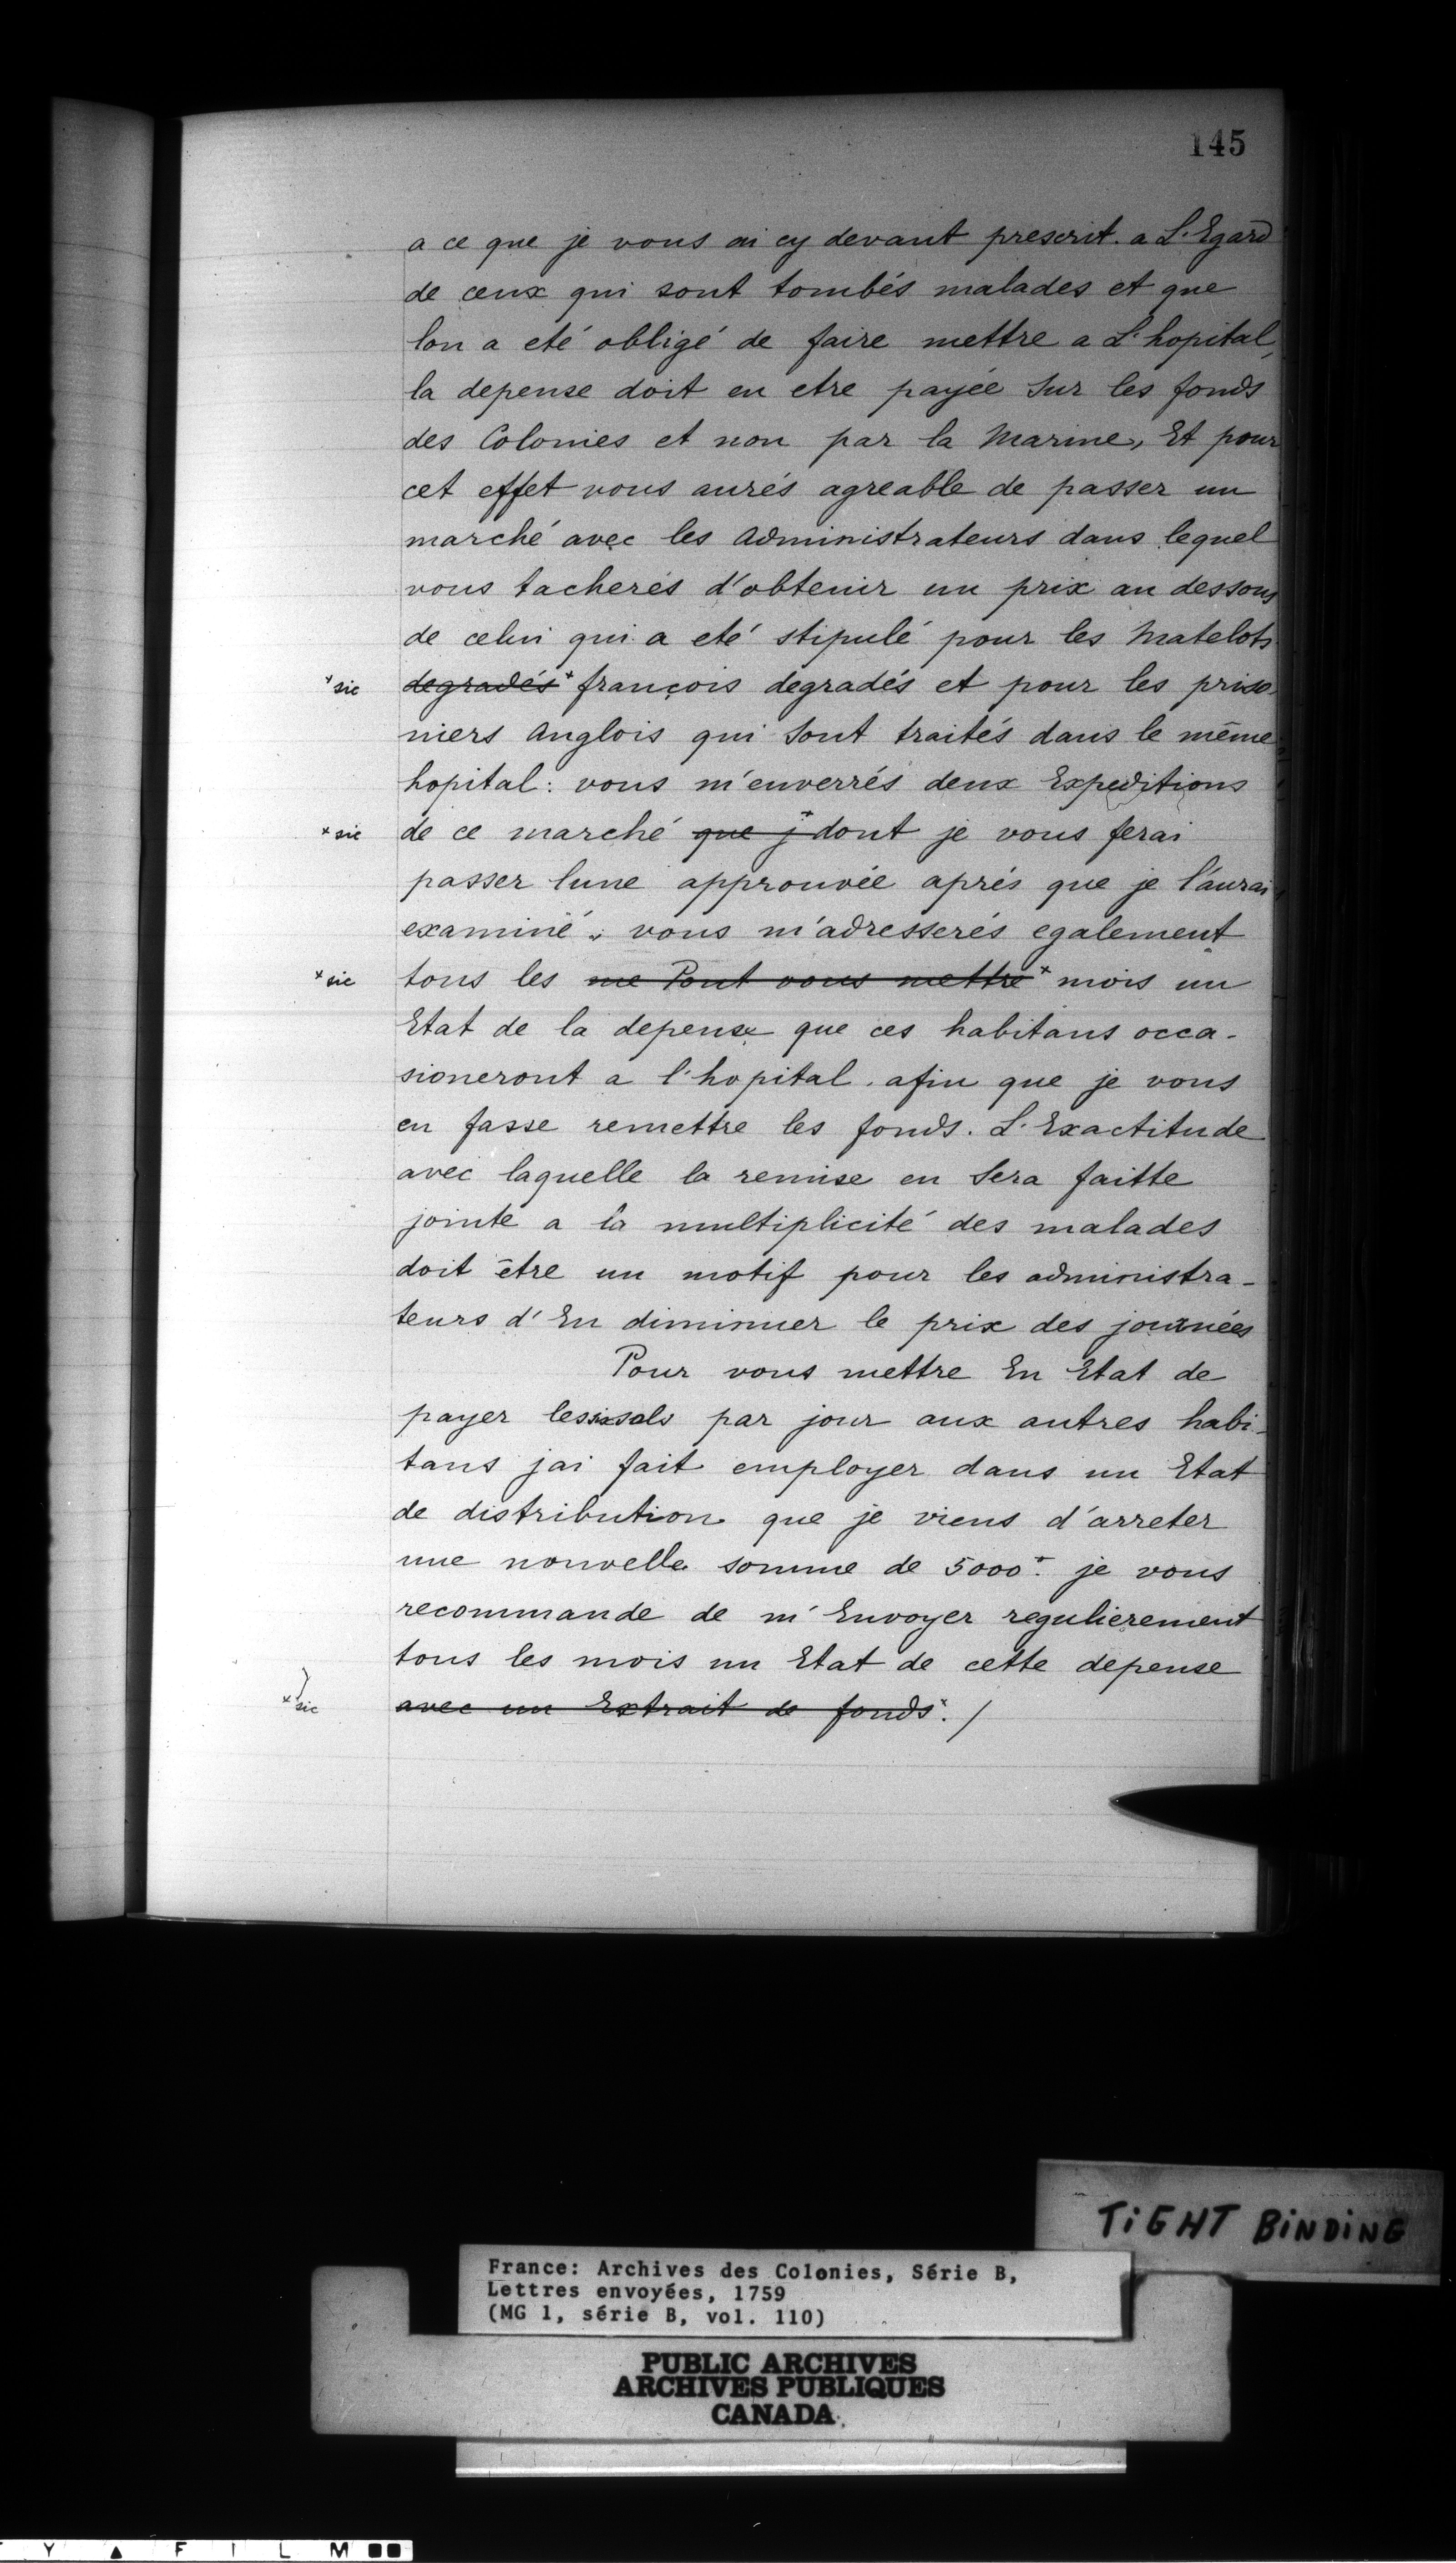 145
a ce que je vous ai cy devant prescrit. a L'Egard
de ceux qui sont tombés malades et que
lon a eté obligé de faire mettre a L'hopital,
la depense doit en etre payée Sur les fonds
des Colonies et non par la Marine, Et pour
cet effet vous aurés agreable de passer un
marché avec les administrateurs dans lequel
vous tacherés d'obtenir un prix au dessous
de celui qui a eté stipulé pour les Matelots
* sic degradés* françois degradés et pour les priso-
niers anglois qui Sont traités dans le même
hopital: vous m'enverrés deux Expeditions
* sic de ce marché que j* dont je vous ferai
passer lune approuvée aprés que je l'aurai
examiné; vous m'adresserés egalement
* sic tous les me Pont vous mettre* mois un
Etat de la depense que ces habitans occa-
sioneront a l'hopital. afin que je vous
en fasse remettre les fonds. L'Exactitude
avec laquelle la remise en Sera faitte
jointe a la multiplicité des malades
doit être un motif pour les administra-
teurs d'En diminuer le prix des journées
Pour vous mettre En Etat de
payer les six sols par jour aux autres habi-
tans jai fait employer dans un Etat
de distribution que je viens d'arreter
une nouvelle somme de 5000⁺. je vous
recommande de m'Envoyer regulierement
tous les mois un Etat de cette depense
* sic avec un Extrait de fonds*. /
TIGHT BINDING
France: Archives des Colonies, Série B,
Lettres envoyées, 1759
(MG 1, série B, vol. 110)
PUBLIC ARCHIVES
ARCHIVES PUBLIQUES
CANADA
Y ▲ F I L M